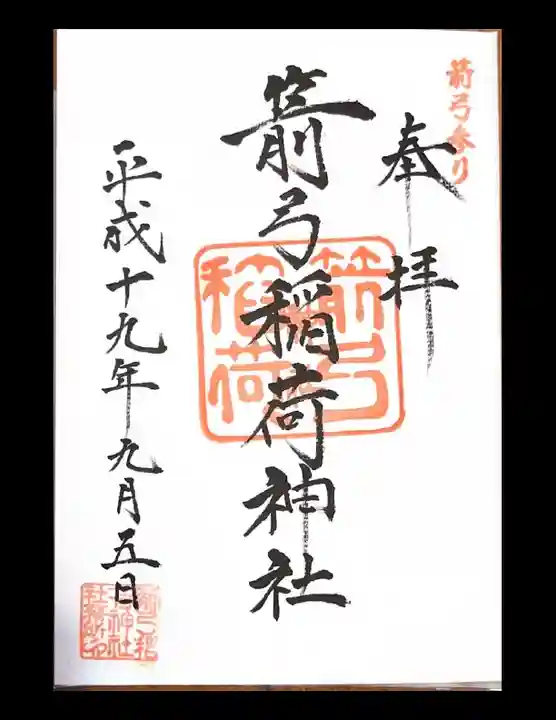 箭弓参り
奉拝
箭弓稲荷神社
箭弓
稲荷
平成十九年九月五日